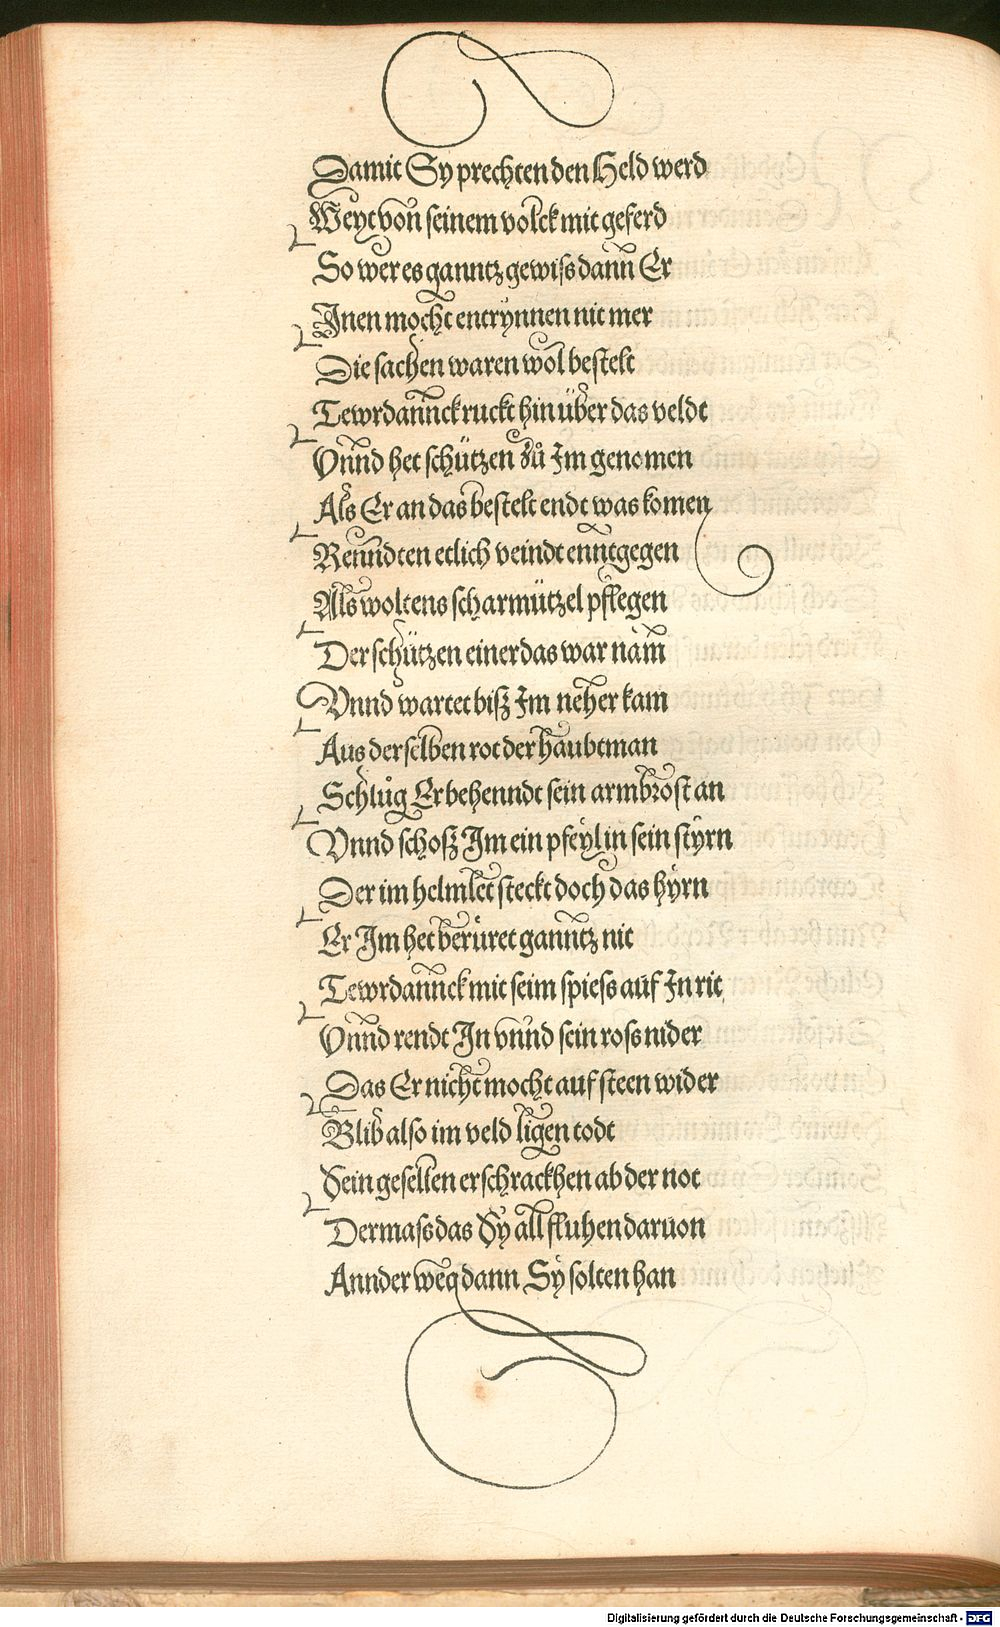 Damit Sy prechten den Held werd
Weyt von seinem volck mit geferd
So wer es ganntz gewiss dann Er
Inen mocht entrynnen nit mer
Die sachen waren wol bestelt
Tewrdannck ruckt hin über das veldt
Vnnd het schützen zů Im genomen
Als Er an das bestelt endt was komen
Renndten etlich veindt enntgegen
Als woltens scharmützel pflegen
Der schützen einer das war nam
Vnnd wartet biß Im neher kam
Aus derselben rot der haubtman
Schlůg Er behenndt sein armbrost an
Vnnd schoß Im ein pfeyl in sein styrn
Der im helmlet steckt doch das hyrn
Er Im het berüret ganntz nit
Tewrdannck mit seim spiess auf In rit
Vnnd rendt In vnnd sein ross nider
Das Er nicht mocht auf steen wider
Blib also im veld ligen todt
Sein geselten erschrackhen ab der not
Dermass das Sy all fluhen daruon
Annder weg dann Sy solten han
Digitalisierung gefördert durch die Deutsche Forschungsgemeinschaft - DFG